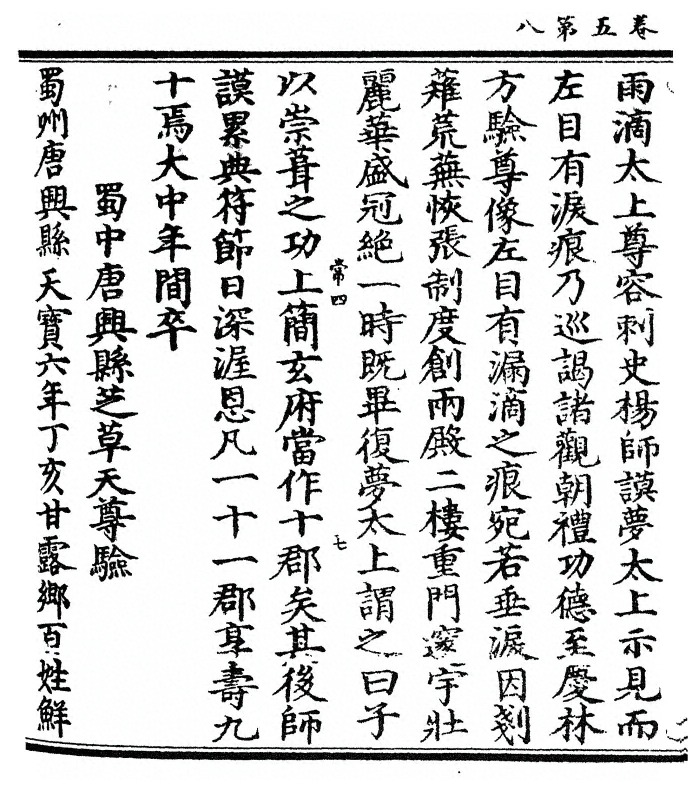 卷五第八
雨滴太上尊容刺史楊師謨夢太上示見而
左目有淚痕乃巡謁諸觀朝禮功德至慶林
方驗尊像左目有漏滴之痕宛若垂淚因剗
薙荒蕪恢張制度創兩殿二樓重門邃宇壯
麗華盛冠絕一時既畢復夢太上謂之曰子
常四
七
以崇葺之功上簡玄府當作十郡矣其後師
謨累典符節日深渥恩凡一十一郡享壽九
十焉大中年間卒
蜀中唐興縣芝草天尊驗
蜀州唐興縣天寶六年丁亥甘露鄉百姓鮮